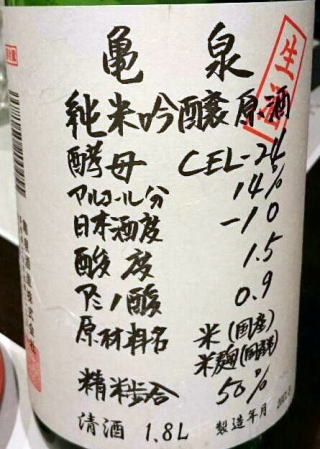 亀泉
純米吟醸原酒
酵母 CEL-24
アルコール分 14%
日本酒度 -10
酸度 1.5
アミノ酸 0.9
原材料名 米(国産)
米麹(国産米)
精米歩合 50%
清酒 1.8L 製造年月